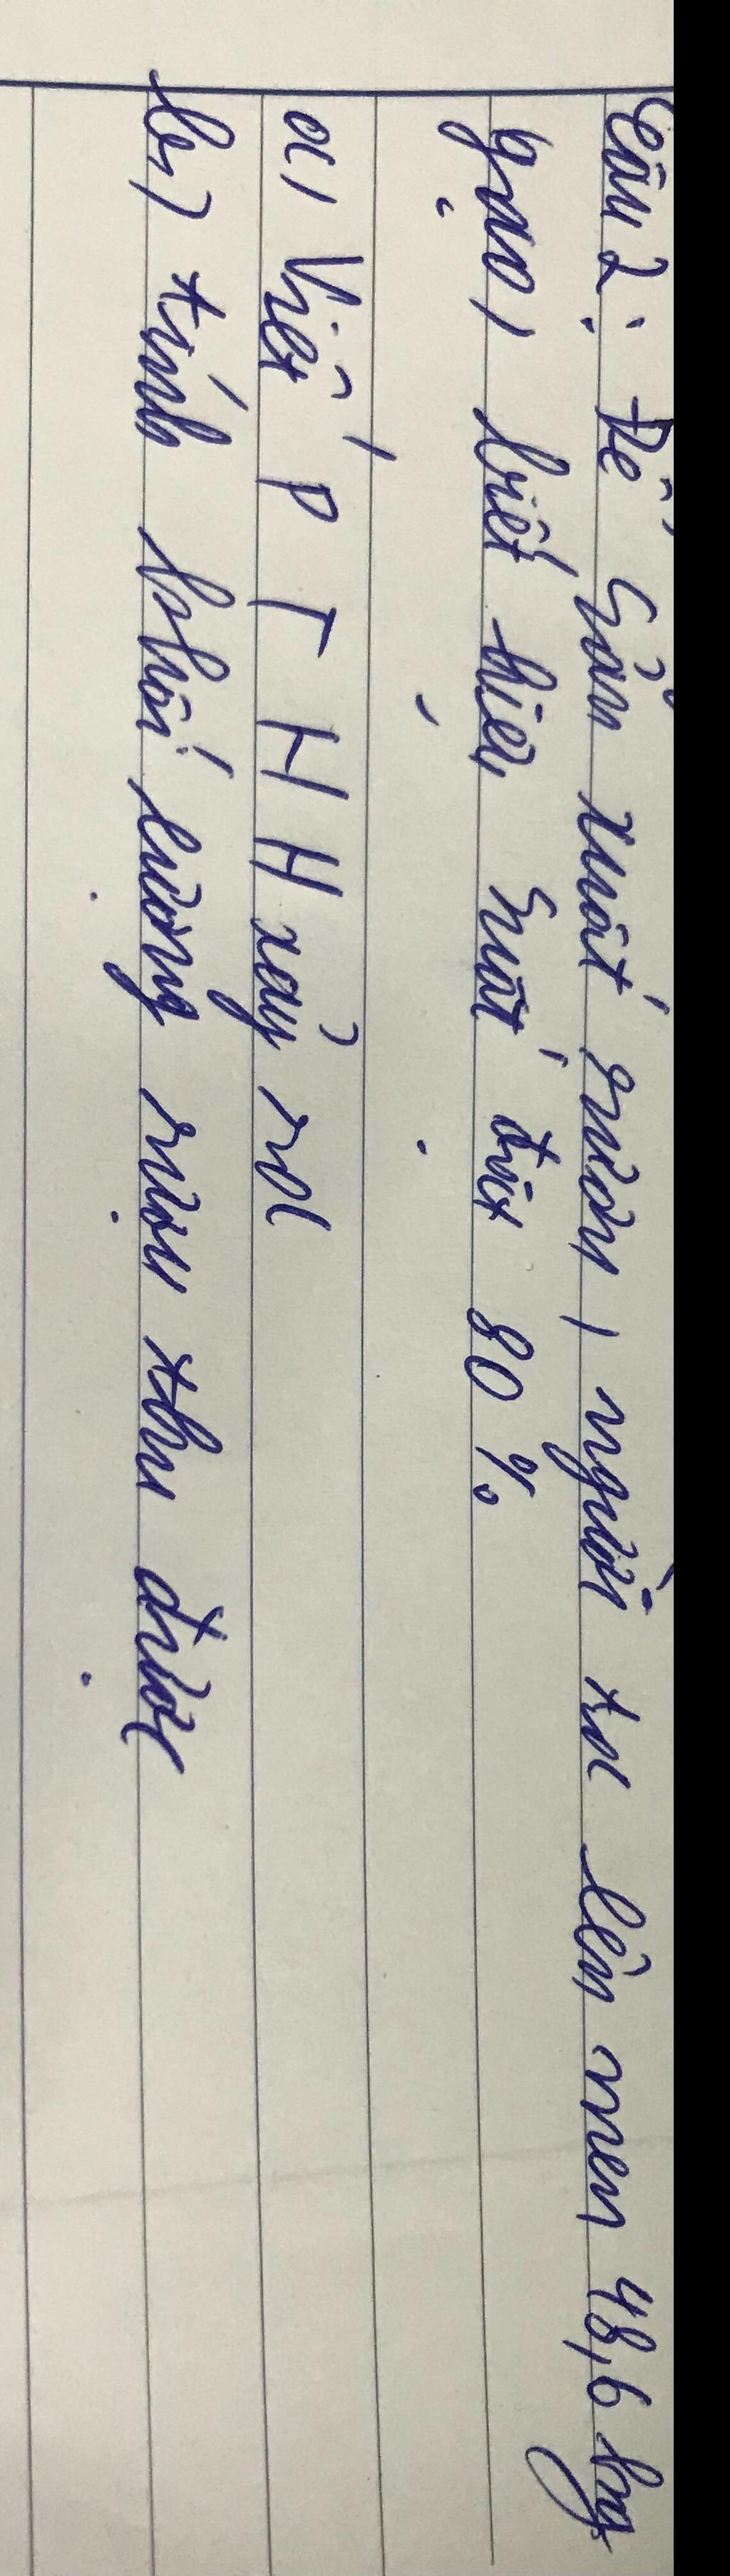 Câu 2: Để sản xuất rượu, người ta lên men 48,6 kg
gạo, biết hiệu suất đạt 80%
a, Viết PTHH xảy ra
b,) tính khối lượng rượu thu được